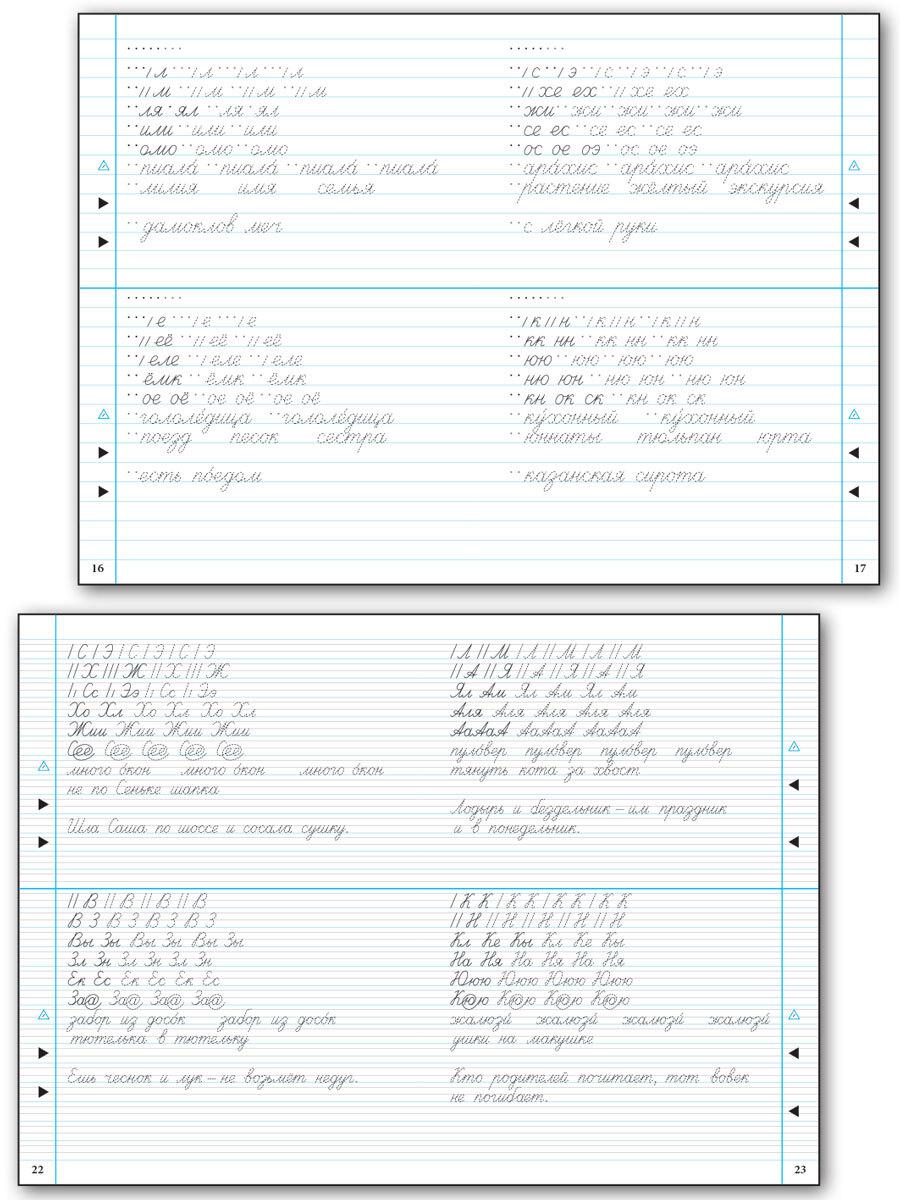 л л л л
м м м м
ля ял ля ял
или или или
омо омо омо
пиала́ пиала́ пиала́ пиала́
лилия имя семья
дамоклов меч
с э с э с э
хе ех хе ех
жи жи жи жи жи
се ес се ес се ес
ос ое оэ ос ое оэ
ара́хис ара́хис ара́хис
растение жёлтый экскурсия
с лёгкой руки
е е е
её её её
еле еле еле
ёмк ёмк ёмк
ое оё ое оё ое оё
гололе́дица гололе́дица
поезд песок сестра
есть по́едом
к н к н к н
кк нн кк нн кк нн
юю юю юю юю
ню юн ню юн ню юн
кн ок ск кн ок ск
ку́хонный ку́хонный
юннаты тюльпан юрта
казанская сирота
16
17
С Э С Э С Э С Э
Х Ж Х Ж
Сс Ээ Сс Ээ
Хо Хл Хо Хл Хо Хл
Жии Жии Жии Жии
Сее Сее Сее Сее Сее
много о́кон много о́кон много о́кон
не по Сеньке шапка
Шла Саша по шоссе и сосала сушку.
Л М Л М Л М
А Я А Я А Я
Ял Ам Ял Ам Ял Ам
Аля Аля Аля Аля Аля
АаАаА АаАаА АаАаА
пуло́вер пуло́вер пуло́вер пуло́вер
тянуть кота за хвост
Лодырь и бездельник – им праздник
и в понедельник.
В В В В
В З В З В З В З
Вы Зы Вы Зы Вы Зы
Зл Зн Зл Зн Зл Зн
Ек Ес Ек Ес Ек Ес
За@, За@, За@, За@,
забор из досо́к забор из досо́к
тютелька в тютельку
Ешь чеснок и лук – не возьмёт недуг.
К К К К К К К К
Н Н Н Н Н
Кл Ке Кы Кл Ке Кы
На Ня На Ня На Ня
Ююю Ююю Ююю Ююю
К@ю К@ю К@ю К@ю
жалюзи́ жалюзи́ жалюзи́ жалюзи́
ушки на макушке
Кто родителей почитает, тот вовек
не погибает.
22
23